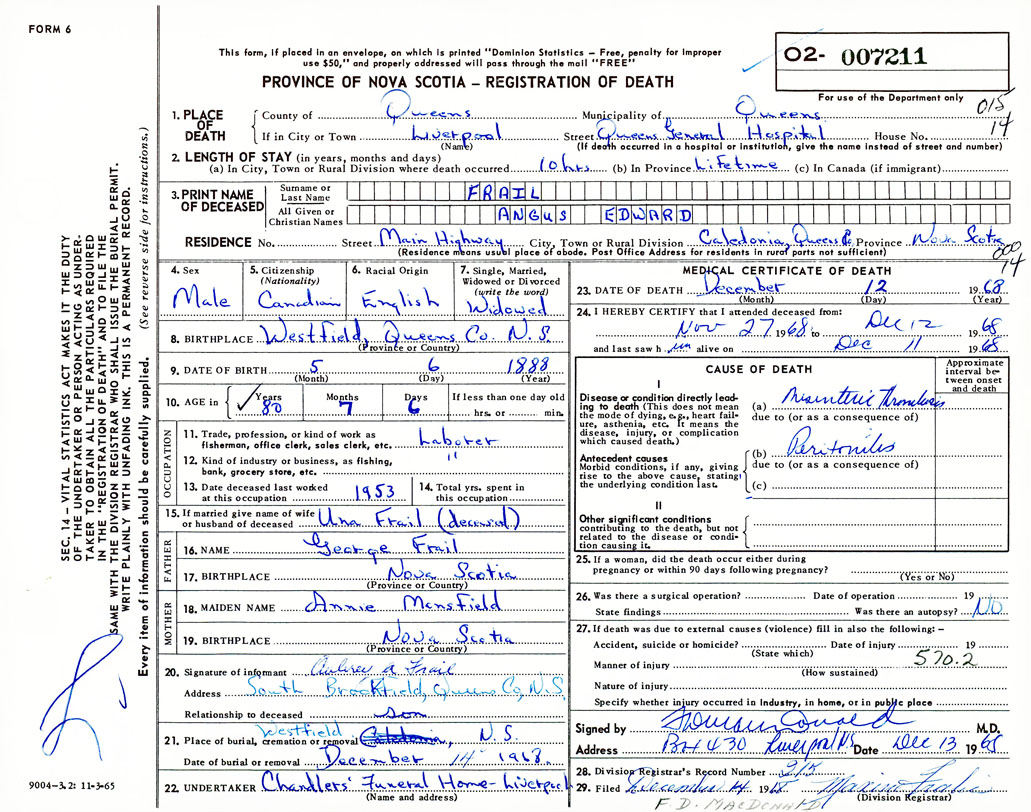 FORM 6
This form, if placed in an envelope, on which is printed "Dominion Statistics – Free, penalty for improper
use $50," and properly addressed will pass through the mail "FREE"
PROVINCE OF NOVA SCOTIA – REGISTRATION OF DEATH
02- 007211
For use of the Department only
015
14
1. PLACE OF DEATH
County of Queens Municipality of Queens
If in City or Town Liverpool Street Queens General Hospital House No.
(Name) (If death occurred in a hospital or institution, give the name instead of street and number)
2. LENGTH OF STAY (in years, months and days)
(a) In City, Town or Rural Division where death occurred 10 hrs. (b) In Province Lifetime (c) In Canada (if immigrant)
3. PRINT NAME OF DECEASED
Surname or Last Name FRAIL
All Given or Christian Names ANGUS EDWARD
RESIDENCE No. Street Main Highway City, Town or Rural Division Caledonia, Queens Province Nova Scotia
(Residence means usual place of abode. Post Office Address for residents in rural parts not sufficient)
000
14
4. Sex
Male
5. Citizenship
(Nationality)
Canadian
6. Racial Origin
English
7. Single, Married,
Widowed or Divorced
(write the word)
Widowed
8. BIRTHPLACE Westfield, Queens Co. N.S.
(Province or Country)
9. DATE OF BIRTH 5 6 1888
(Month) (Day) (Year)
10. AGE in Years 80 Months 7 Days 6
If less than one day old
hrs. or min.
OCCUPATION
11. Trade, profession, or kind of work as
fisherman, office clerk, sales clerk, etc. Laborer
12. Kind of industry or business, as fishing,
bank, grocery store, etc. "
13. Date deceased last worked
at this occupation 1953
14. Total yrs. spent in
this occupation
15. If married give name of wife
or husband of deceased Una Frail (deceased)
FATHER
16. NAME George Frail
17. BIRTHPLACE Nova Scotia
(Province or Country)
MOTHER
18. MAIDEN NAME Annie Mansfield
19. BIRTHPLACE Nova Scotia
(Province or Country)
20. Signature of informant Aubrey A Frail
Address South Brookfield, Queens Co, N.S.
Relationship to deceased son
21. Place of burial, cremation or removal Westfield, N.S.
Date of burial or removal December 14 1968
22. UNDERTAKER Chandlers' Funeral Home - Liverpool
(Name and address)
MEDICAL CERTIFICATE OF DEATH
23. DATE OF DEATH December 12 1968
(Month) (Day) (Year)
24. I HEREBY CERTIFY that I attended deceased from:
Nov 27 1968 to Dec 12 1968
and last saw h im alive on Dec 11 1968
CAUSE OF DEATH
Approximate
interval be-
tween onset
and death
I
Disease or condition directly lead-
ing to death (This does not mean
the mode of dying, e.g., heart failure,
asthenia, etc. It means the
disease, injury, or complication
which caused death.)
(a) Misenteric Thrombosis
due to (or as a consequence of)
Antecedent causes
Morbid conditions, if any, giving
rise to the above cause, stating
the underlying condition last.
(b) Peritonitis
due to (or as a consequence of)
(c)
II
Other significant conditions
contributing to the death, but not
related to the disease or condi-
tion causing it.
25. If a woman, did the death occur either during
pregnancy or within 90 days following pregnancy?
(Yes or No)
26. Was there a surgical operation? Date of operation 19
State findings Was there an autopsy? NO
27. If death was due to external causes (violence) fill in also the following: –
Accident, suicide or homicide? Date of injury 19
(State which)
Manner of injury 570.2
(How sustained)
Nature of injury
Specify whether injury occurred in Industry, in home, or in public place
Signed by M.D.
Address Box 430 Liverpool NS Date Dec 13 1968
28. Division Registrar's Record Number
29. Filed December 14 1968
(Division Registrar)
F D. MACDONALD
SEC. 14 – VITAL STATISTICS ACT MAKES IT THE DUTY
OF THE UNDERTAKER OR PERSON ACTING AS UNDER-
TAKER TO OBTAIN ALL THE PARTICULARS REQUIRED
IN THE "REGISTRATION OF DEATH" AND TO FILE THE
SAME WITH THE DIVISION REGISTRAR WHO SHALL ISSUE THE BURIAL PERMIT.
WRITE PLAINLY WITH UNFADING INK. THIS IS A PERMANENT RECORD.
Every item of information should be carefully supplied. (See reverse side for instructions.)
9004-3.2: 11-3-65